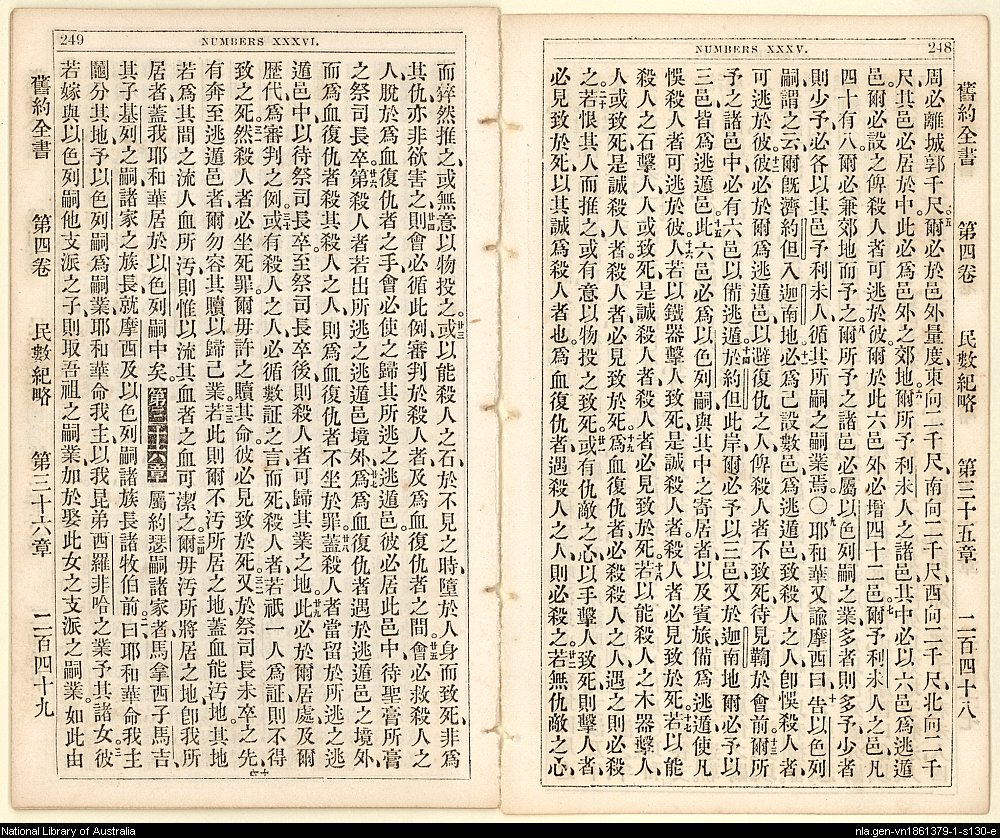 NUMBERS XXXV. 248
舊約全書 第四卷 民數紀略 第三十五章 二百四十八
周必離城郭千尺五爾必於邑外量度東向二千尺南向二千尺西向二千尺北向二千
尺其邑必居於中此必爲邑外之郊地六爾所予利未人之諸邑其中必以六邑爲逃遁
邑爾必設之俾殺人者可逃於彼爾於此六邑外必增四十二邑七爾予利未人之邑凡
四十有八爾必兼郊地而予之八爾所予之諸邑必屬以色列嗣之業多者則多予少者
則少予必各以其邑予利未人循其所嗣之嗣業焉〇九耶和華又諭摩西曰十告以色列
嗣謂之云爾旣濟約但入迦南地十一必爲己設數邑爲逃遁邑致殺人之人卽悞殺人者
可逃於彼十二彼必於爾爲逃遁邑以避復仇之人俾殺人者不致死待見鞫於會前十三爾所
予之諸邑中必有六邑以備逃遁十四於約但此岸爾必予以三邑又於迦南地爾必予以
三邑皆爲逃遁邑十五此六邑必爲以色列嗣與其中之寄居者以及賓旅備爲逃遁使凡
悞殺人者可逃於彼十六人若以鐵器擊人致死是誠殺人者殺人者必見致於死十七若以能
殺人之石擊人人或致死是誠殺人者殺人者必見致於死十八若以能殺人之木器擊人
人或致死是誠殺人者殺人者必見致於死十九爲血復仇者必殺殺人之人遇之則必殺
之二十若恨其人而推之或有意以物投之致死廿一或有仇敵之心以手擊人致死則擊人者
必見致於死以其誠爲殺人者也爲血復仇者遇殺人之人則必殺之廿二若無仇敵之心
249 NUMBERS XXXVI.
而猝然推之或無意以物投之廿三或以能殺人之石於不見之時墮於人身而致死非爲
其仇亦非欲害之廿四則會必循此例審判於殺人者及爲血復仇者之間廿五會必救殺人之
人脫於爲血復仇者之手會必使之歸其所逃之逃遁邑彼必居此邑中待聖膏所膏
之祭司長卒廿六第殺人者若出所逃之逃遁邑境外廿七爲血復仇者遇於逃遁邑之境外
而爲血復仇者殺其殺人之人則爲血復仇者不坐於罪廿八蓋殺人者當留於所逃之逃
遁邑中以待祭司長卒至祭司長卒後則殺人者可歸其業之地廿九此必於爾居處及爾
歷代爲審判之例三十或有殺人之人必循數証之言而死殺人者若祇一人爲証則不得
致之死三一然殺人者必坐死罪爾毋許之贖其命彼必見致於死三二又於祭司長未卒之先
有奔至逃遁邑者爾勿容其贖以歸己業三三若此則爾不汚所居之地蓋血能汚地其地
若爲其間之流人血所汚則惟以流其血者之血可潔之三四爾毋汚所將居之地卽我所
居者蓋我耶和華居於以色列嗣中矣第三十六章一屬約瑟嗣諸家者馬拿西子馬吉
其子基列之嗣諸家之族長就摩西及以色列嗣諸族長諸牧伯前二曰耶和華命我主
鬮分其地予以色列嗣爲嗣業耶和華命我主以我昆弟西羅非哈之業予其諸女三彼
若嫁與以色列嗣他支派之子則取吾祖之嗣業加於娶此女之支派之嗣業如此由
舊約全書 第四卷 民數紀略 第三十六章 二百四十九
National Library of Australia
nla.gen-vn1861379-1-s130-e